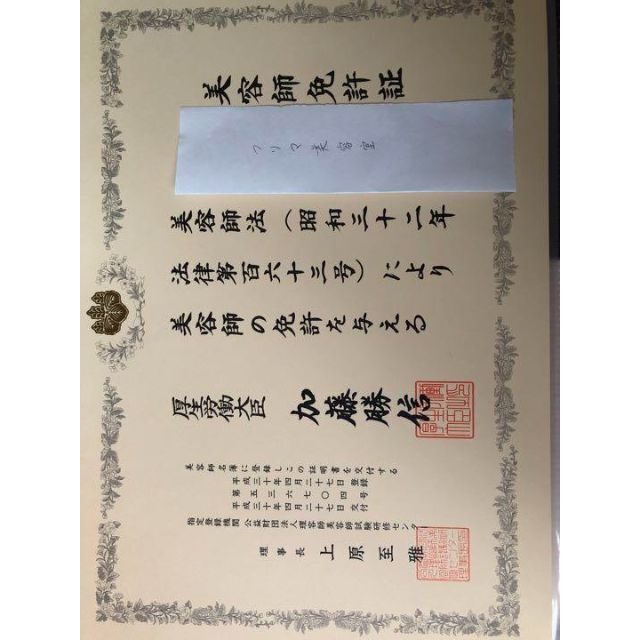 美容師免許証
フリマ美容室
美容師法（昭和三十二年
法律第百六十三号）により
美容師の免許を与える
厚生労働大臣 加藤勝信
美容師名簿に登録しこの証明書を交付する
平成三十年四月二十七日登録
第五三六七〇四号
平成三十年四月二十七日交付
指定登録機関 公益財団法人理容師美容師試験研修センター
理事長 上原至雅